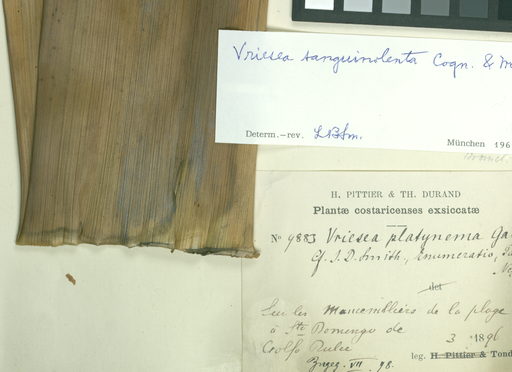 Vriesea sanguinolenta Cogn. & Ma
Determ.–rev. LBSm.
München 196
H. PITTIER & TH. DURAND
Plantæ costaricenses exsiccatæ
No 9883 Vriesea platynema Ga
Cf. J. D. Smith, Enumeratio,
det
Sur les Mancenilliers de la plage
à Sto Domingo de
Golfo Dulce
3 1896
leg. H. Pittier & Tond
VII. 98.